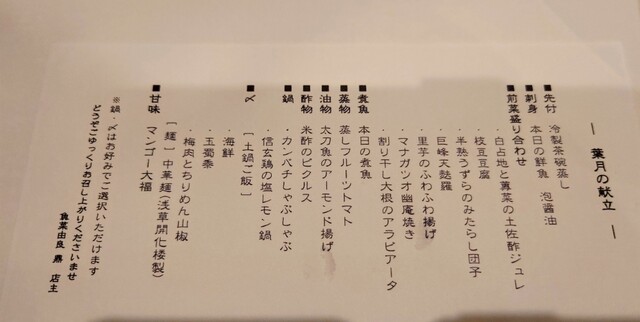 ― 葉月の献立 ―
■先付 冷製茶碗蒸し
■刺身 本日の鮮魚 泡醤油
■前菜盛り合わせ
・白占地と蓴菜の土佐酢ジュレ
・枝豆豆腐
・半熟うずらのみたらし団子
・巨峰天麩羅
・里芋のふわふわ揚げ
・マナガツオ幽庵焼き
・割り干し大根のアラビアータ
■煮魚 本日の煮魚
■蒸物 蒸しフルーツトマト
■油物 太刀魚のアーモンド揚げ
■酢物 米酢のピクルス
■鍋 ・カンパチしゃぶしゃぶ
・信玄鶏の塩レモン鍋
■〆 [土鍋ご飯]
・海鮮
・玉蜀黍
・梅肉とちりめん山椒
[麺] 中華麺(浅草開化楼製)
■甘味 マンゴー大福
※鍋・〆はお好みでご選択いただけます
どうぞごゆっくりお召し上がりくださいませ
魚菜由良 鼎 店主